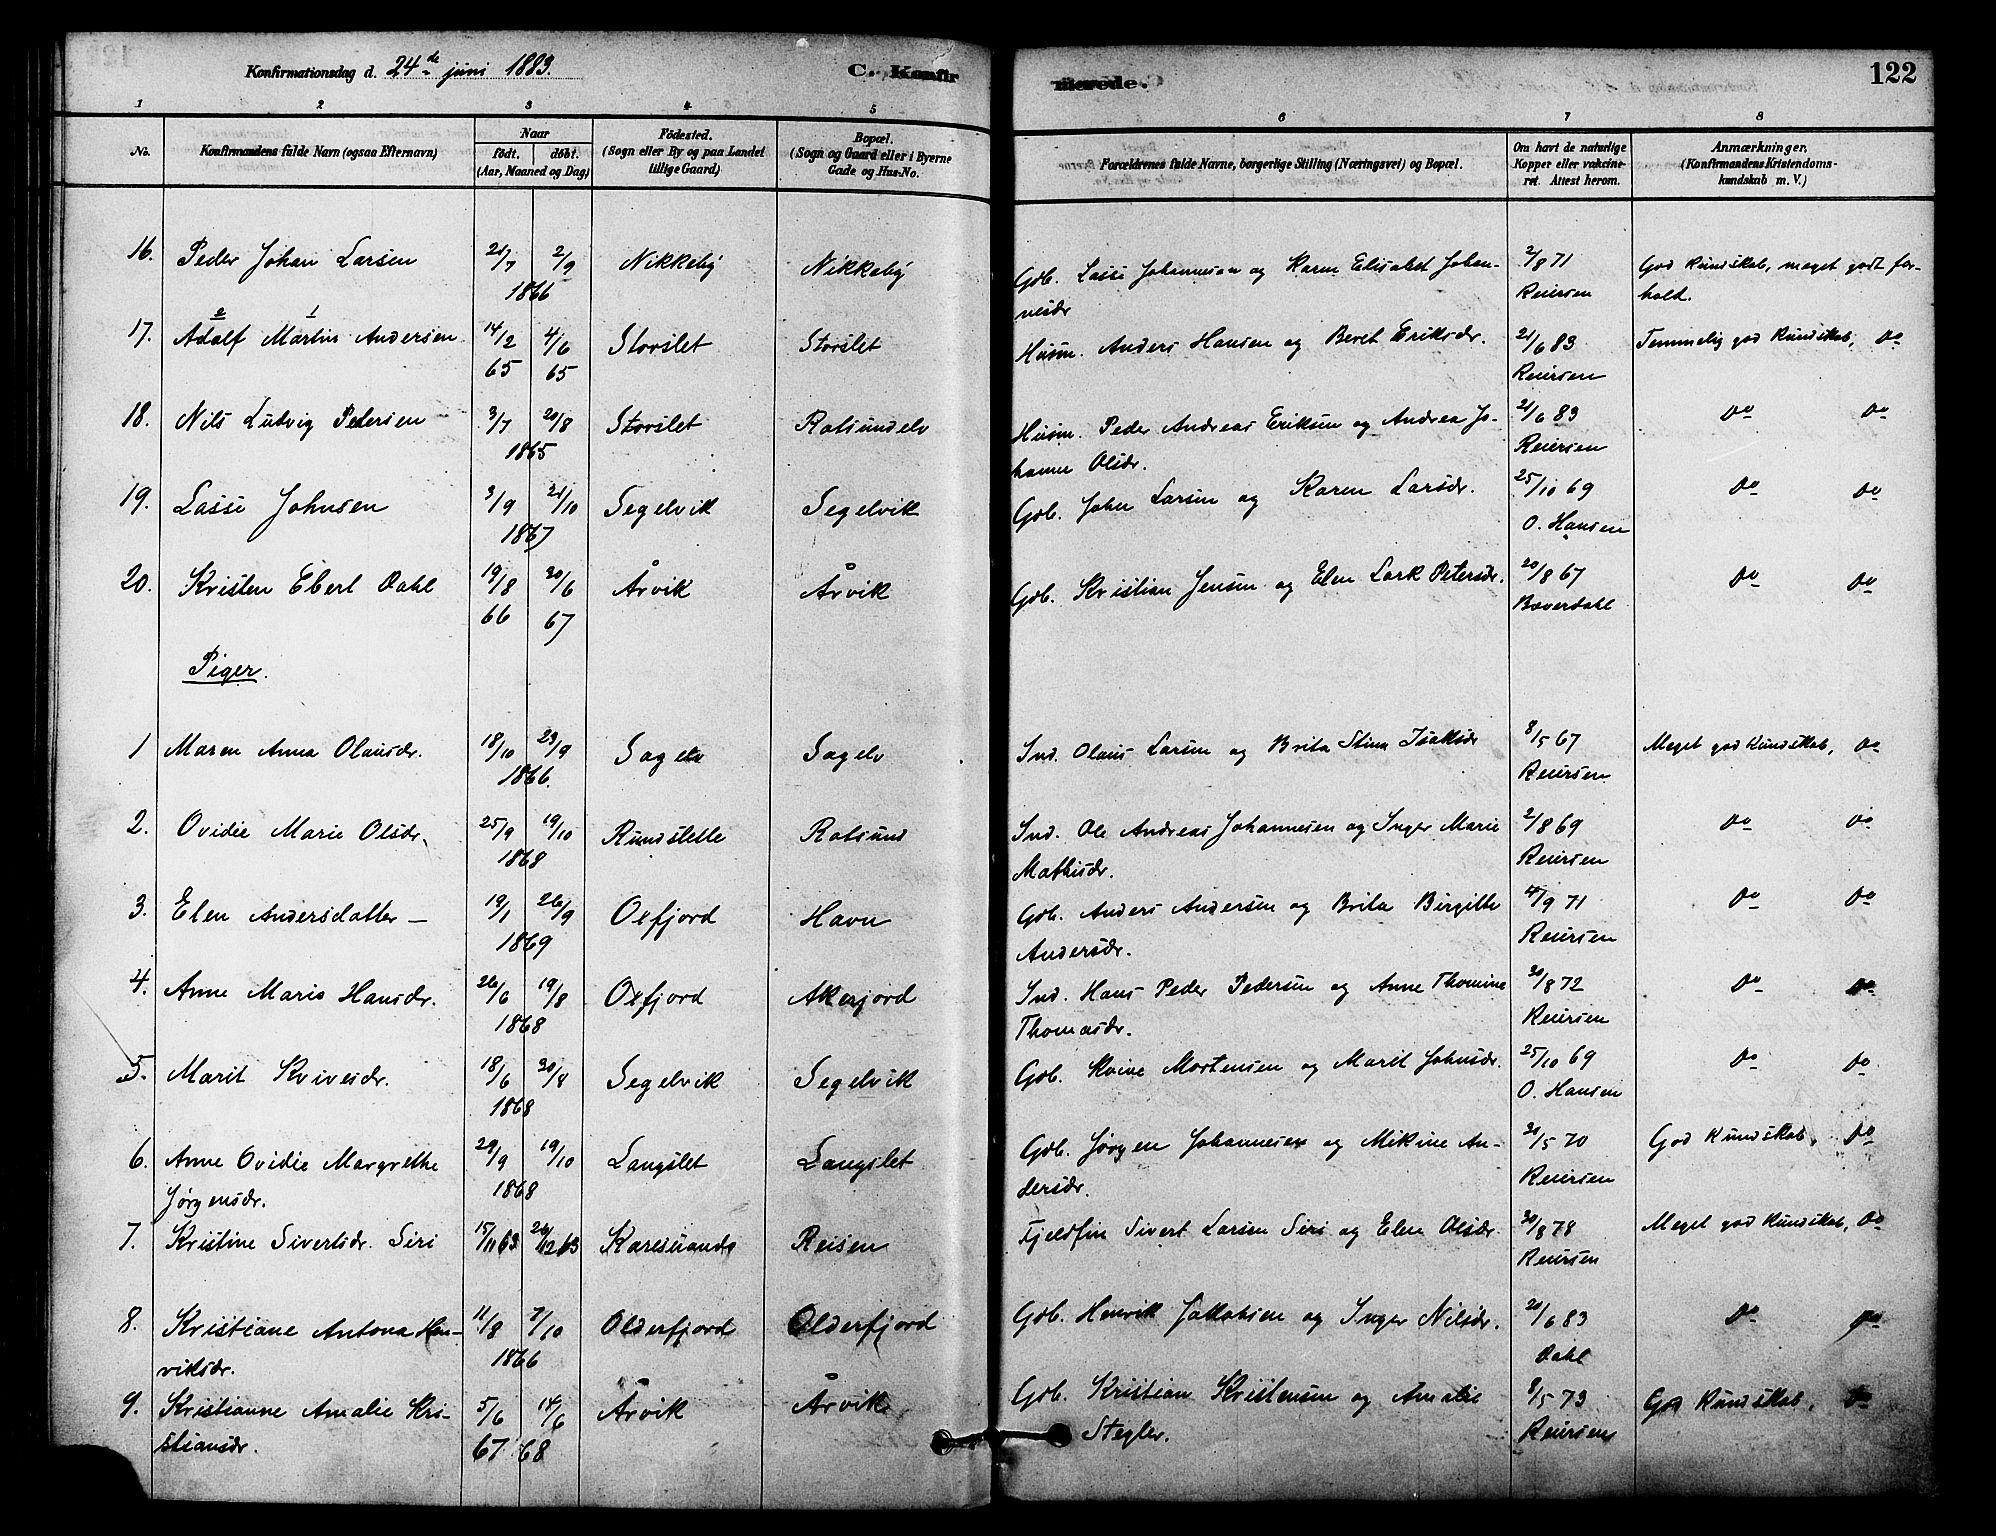 Konfirmationsdag d. 24de juni 1883.
C. Konfirmerede.
122
1 2 3 4 5 6 7 8
No.
Konfirmandens fulde Navn (ogsaa Efternavn)
Naar
født. døbt.
(Aar, Maaned og Dag)
Fødested.
(Sogn eller By og paa Landet
tillige Gaard)
Bopæl.
(Sogn og Gaard eller i Byerne
Gade og Hus-No.
Forældrenes fulde Navne, borgerlige Stilling (Næringsvei) og Bopæl.
Om havt de naturlige
Kopper eller vakcine-
ret. Attest herom.
Anmærkninger.
(Konfirmandens Kristendoms-
kundskab m. V.)
16. Peder Johan Larsen 21/7 2/9 1866 Nikkeby Nikkeby Gdb. Lasse Johannesen og Karen Elisabet Johan-
nesdr 2/8 71 Reiersen God Kundskab, meget godt for-
hold.
17. Adolf Martin Andersen 14/2 65 4/6 65 Storslet Storslet Husm. Anders Hansen og Beret Eriksdr. 21/6 83 Reiersen Temmelig god Kundskab, Do
18. Nils Ludvig Pedersen 3/7 20/8 1865 Storslet Rotsundelv Husm. Peder Andreas Eriksen og Andrea Jo-
hanne Olsdr. 21/6 83 Reiersen Do Do
19. Lasse Johnsen 3/9 21/10 1867 Segelvik Segelvik Gdb. John Larsen og Karen Larsdr. 25/10 69 O. Hansen Do Do
20. Kristen Ebert Dahl 19/8 66 30/6 67 Årvik Årvik Gdb. Kristian Jensen og Elen Lark Petersdr. 20/8 67 Bæverdahl Do Do
Piger.
1 Maren Anna Olausdr. 18/10 23/9 1866. Sagelv Sagelv Ind. Olaus Larsen og Brita Stina Isaksdr 8/5 67 Reiersen Meget god Kundskab, Do
2. Ovidie Marie Olsdr. 25/9 19/10 1868 Rundstelle Rotsund Ind. Ole Andreas Johannesen og Inger Marie
Mathisdr. 2/8 69 Reiersen Do Do
3. Elen Andersdatter 19/1 26/9 1869 Oxfjord Havn Gdb. Anders Andersen og Brita Birgitte
Andersdr. 4/9 71 Reiersen Do Do
4. Anne Maris Hansdr. 26/6 19/8 1868 Oxfjord Akerjord Ind. Hans Peder Pedersen og Anne Thomine
Thomasdr. 30/8 72 Reiersen Do Do
5. Marit Kvivesdr. 18/6 30/8 1868 Segelvik Segelvik Gdb. Kvive Mortensen og Marit Johnsdr. 25/10 69 O. Hansen Do Do
6. Anne Ovidie Margrethe
Jørgensdr. 29/9 19/10 1868 Langslet Langslet Gdb. Jørgen Johannesen og Mikine An-
dersdr. 30/5 70 Reiersen God Kundskab, Do
7. Kristine Sivertsdr. Siri 15/11 63 26/12 63 Karesuando Reisen Fjeldfin Sivert Larsen Siri og Elen Olsdr. 30/8 78 Reiersen Meget god Kundskab, Do
8. Kristiane Antona Hen-
riksdr. 11/8 7/10 1866 Olderfjord Olderfjord Gdb. Henrik Jakobsen og Inger Nilsdr. 20/6 83 Dahl Do Do
9. Kristianne Amalie Kri-
stiansdr. 5/6 67 14/6 68 Årvik Årvik Gdb. Kristian Kristensen og Amalie
Stegler. 9/5 73 Reiersen God Kundskab, Do